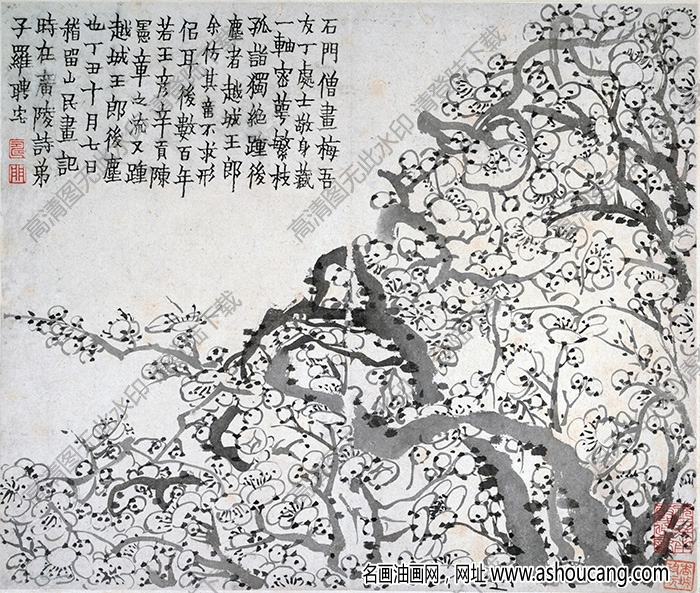 石門僧畫梅吾
友丁處士敬身藏
一軸密萼繁枝
孤詣獨絕踵後
塵者越城王郎
余仿其畫不求形
侣耳後數百年
若王彥辛貢陳
憲章之流又踵
越城王郎後塵
也丁丑十月七日
稽留山民畫記
時在廣陵詩弟
子羅聘
高清图无此水印 请登陆下载
名画油画网，网址 www.ashoucang.com